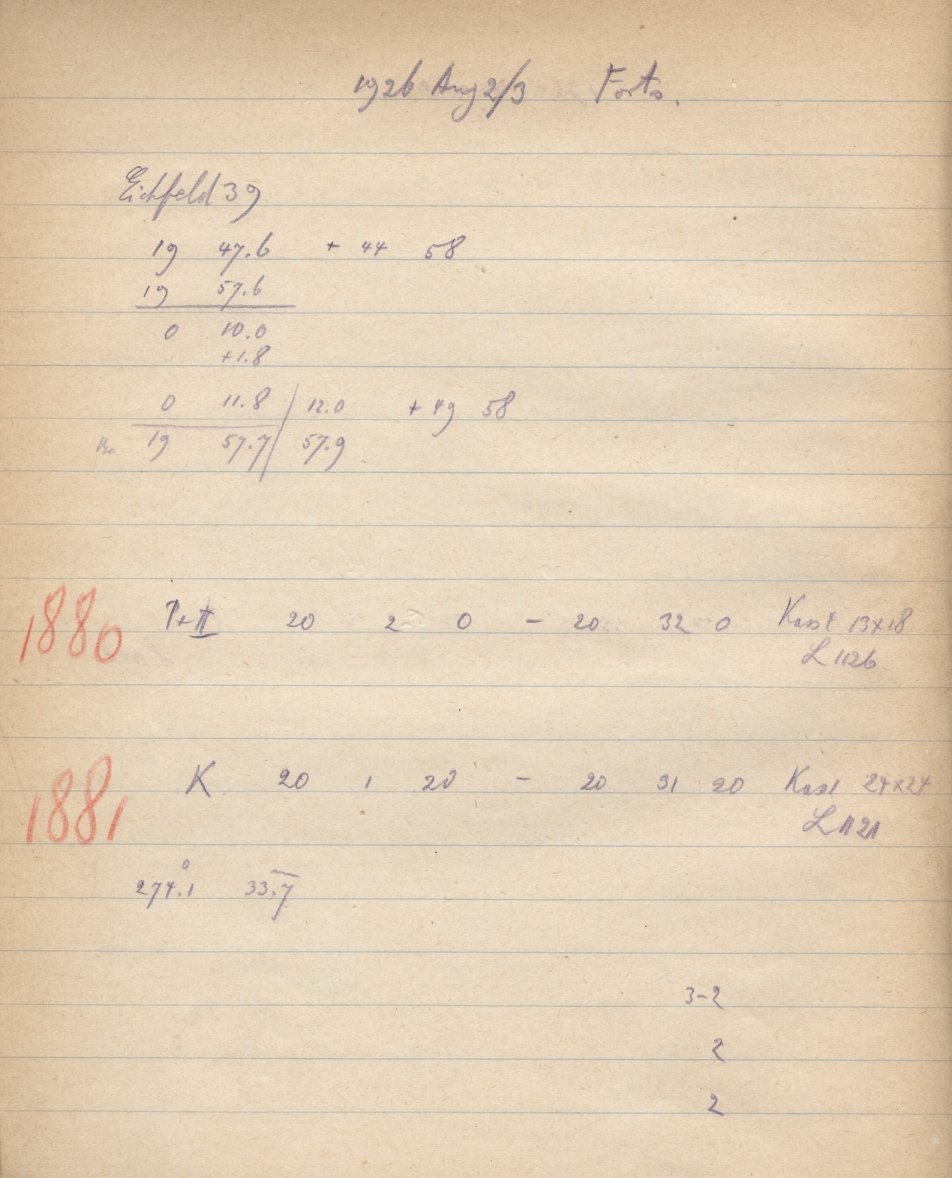 1926 Aug 2/3 Forts.
Eichfeld 39
19 47.6 + 44 58
19 57.6
0 10.0
+1.8
0 11.8 / 12.0 + 49 58
19 57.7 / 57.9
1880 I+II 20 2 0 - 20 32 0 Kass 13x18
L 1126
1881 K 20 1 20 - 20 31 20 Kass 24x24
L 1121
274.1° 33.7
3-2
2
2